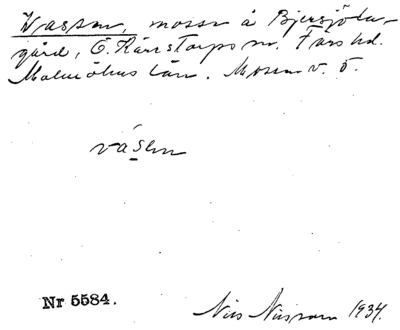 Wassen, mosse å Bjersjöla-
gård, Ö. Kärrstorps sn. Färs hd.
Malmöhus län. Mossen v. Ö.
våsen
Nr 5584.
Nils Nilsson 1934.